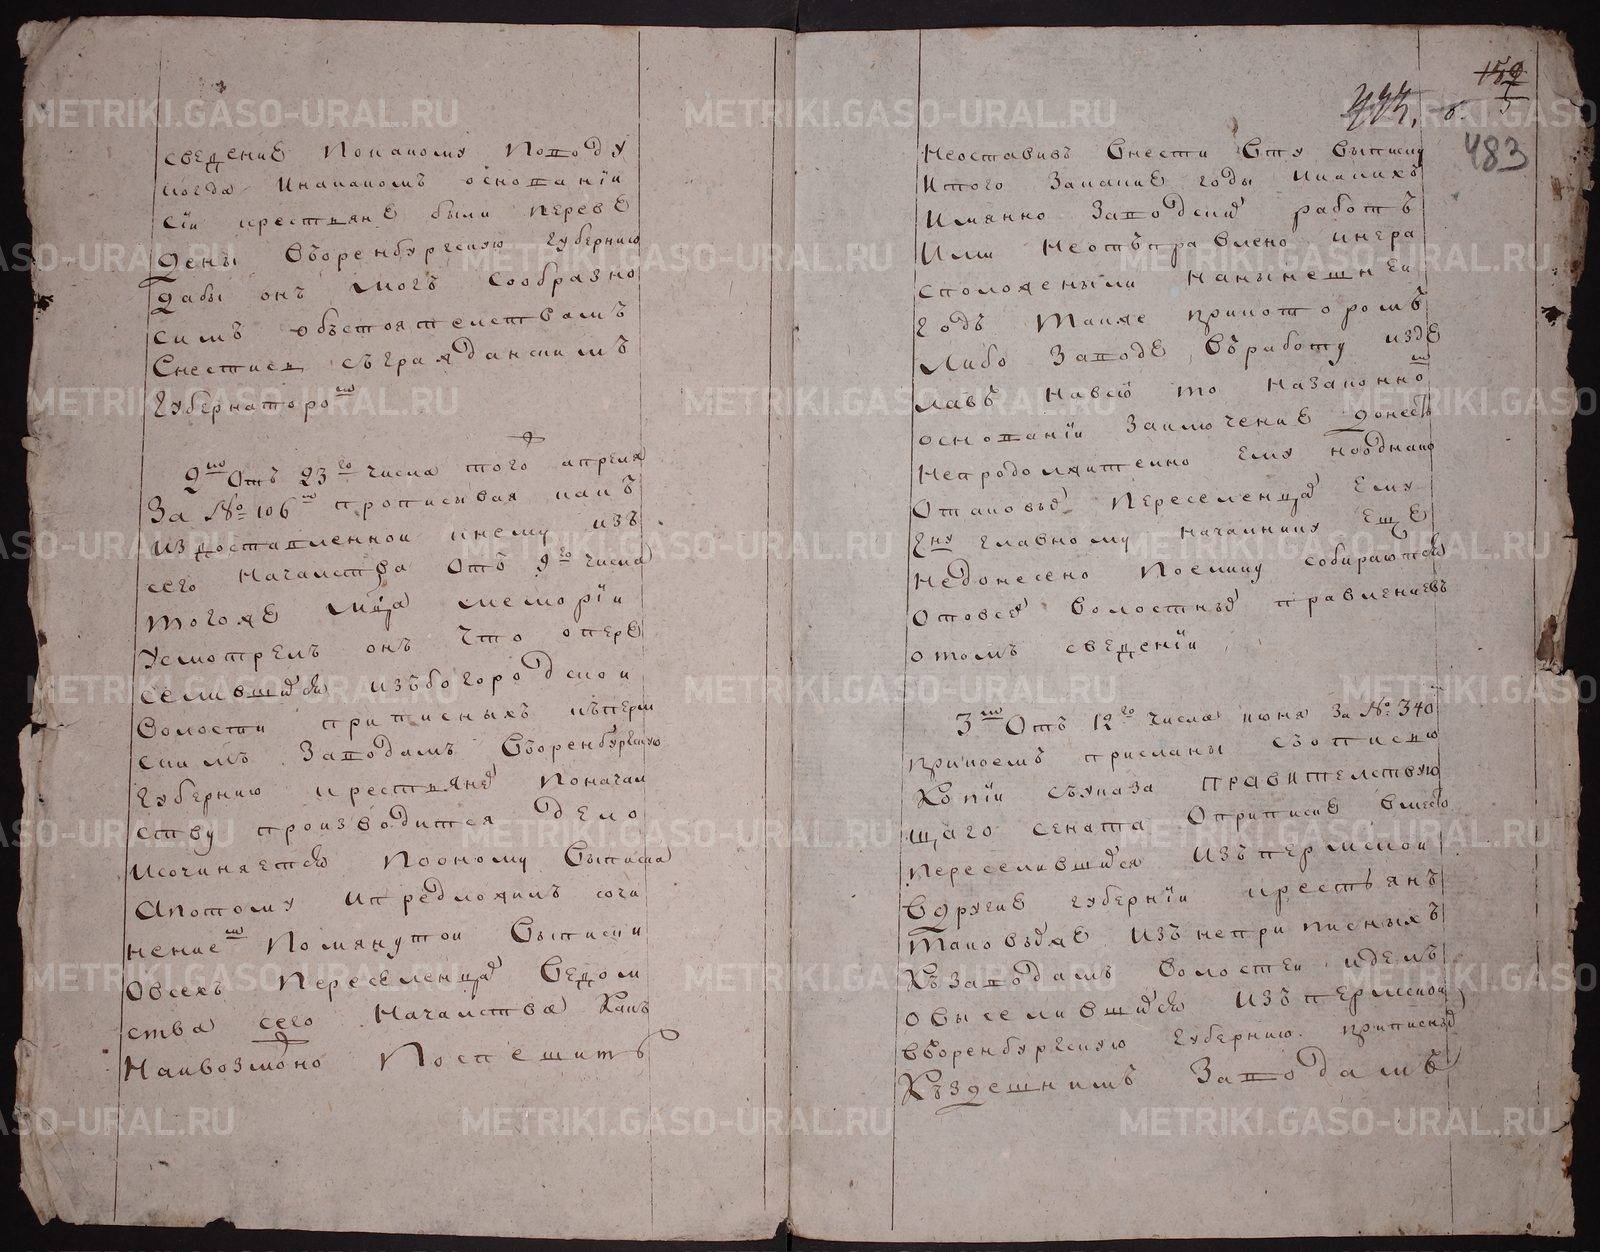 сведение покакому поводу
когда инакакомъ основанїи
сїи крестьяне были переве
дены въоренбургскую губернию
дабы онъ могъ сообразно
симъ обстоятелствамъ
снестись съгражданскимъ
губернаторомъ
2е Отъ 23го числа того апреля
За № 106м прописывая какъ
издоставленной кнему изъ
сего началства отъ 9го числа
тогоже мца мемории
усмотрелъ онъ что опере
селившихся изъбогородской
волости приписныхъ къперм
скимъ заводамъ въоренбургскую
губернию крестьянех поначал
ству производится дело
исочиняется пооному выписка
апотому и предложилъ сочи
нением помянутой выписки
овсехъ переселенцах ведом
ства сего началства какъ
наивозможно поспешить
Неоставивъ внести вту выписку
иктого закакие годы икакихъ
имянно заводских работъ
или неотъправлено инера
сположеныли нанынешнеи
годъ также прикоторомъ
либо заводе въработу изде
лавъ навсїо то назаконном
основанїи заключение донесть
непродолжително ему нооднако
отаковых переселенцах ему
гну главному началнику еще
недонесено поелику собираются
отовсех волостных правлениевъ
отомъ сведенїи
3е Отъ 12го числа июня за № 340м
прикоемъ присланы съописью
копїи съуказа правителствую
щаго сената оприписке вместо
переселившихся изъпермской
вдругие губернїи крестьянъ
таковыхже изънеприписныхъ
къзаводамъ волостей идель
овыселившихся изъпермской
въоренбургскую губернию приписных
къздешнимъ заводамъ
483